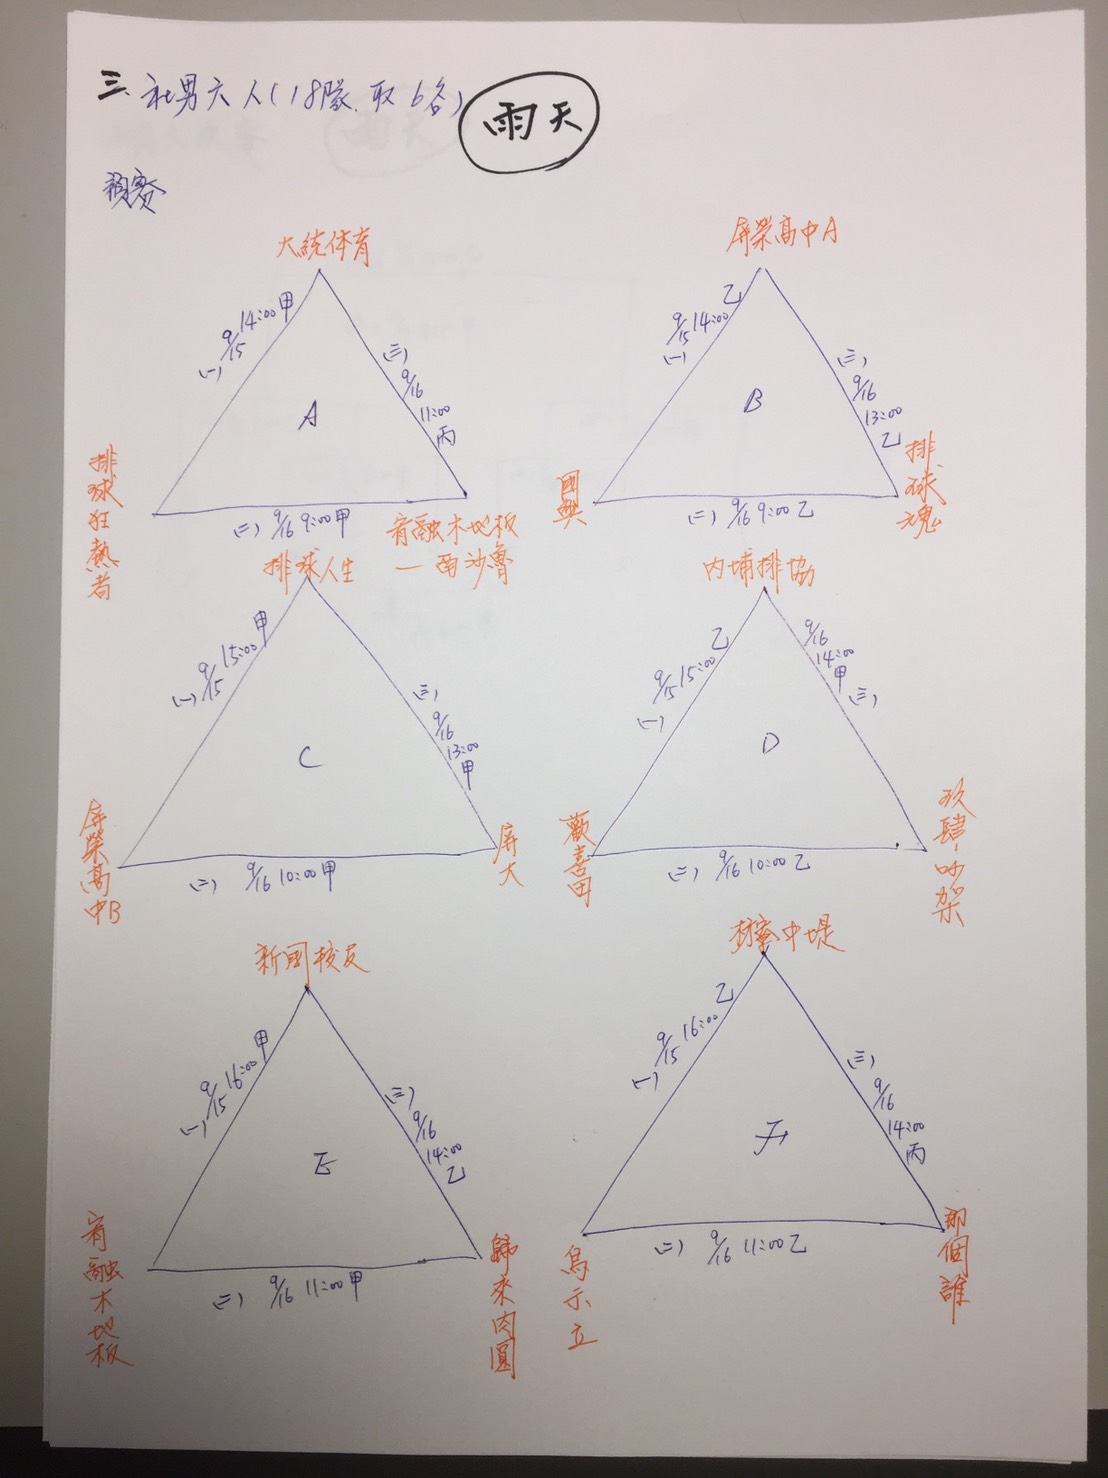 三、社男六人(18隊、取6名)
雨天
預賽
大統体育
(一) 9/15 14:00 甲
(三) 9/16 11:00 丙
A
排球狂熱者
(二) 9/16 9:00 甲
宥融木地板
一西沙魯
屏榮高中A
(一) 9/15 14:00 乙
(三) 9/16 13:00 乙
B
國興
(二) 9/16 9:00 乙
排球魂
排球人生
(一) 9/15 15:00 甲
(三) 9/16 13:00 甲
C
屏榮高中B
(二) 9/16 10:00 甲
屏大
內埔排協
(一) 9/15 15:00 乙
9/16 14:00 甲 (三)
D
歡喜田
(二) 9/16 10:00 乙
玖肆-吵架
新園校友
(一) 9/15 16:00 甲
(三) 9/16 14:00 乙
E
宥融木地板
(二) 9/16 11:00 甲
歸來肉圓
枋寮中堤
(一) 9/15 16:00 乙
(三) 9/16 14:00 丙
F
鳥示立
(二) 9/16 11:00 乙
那個誰